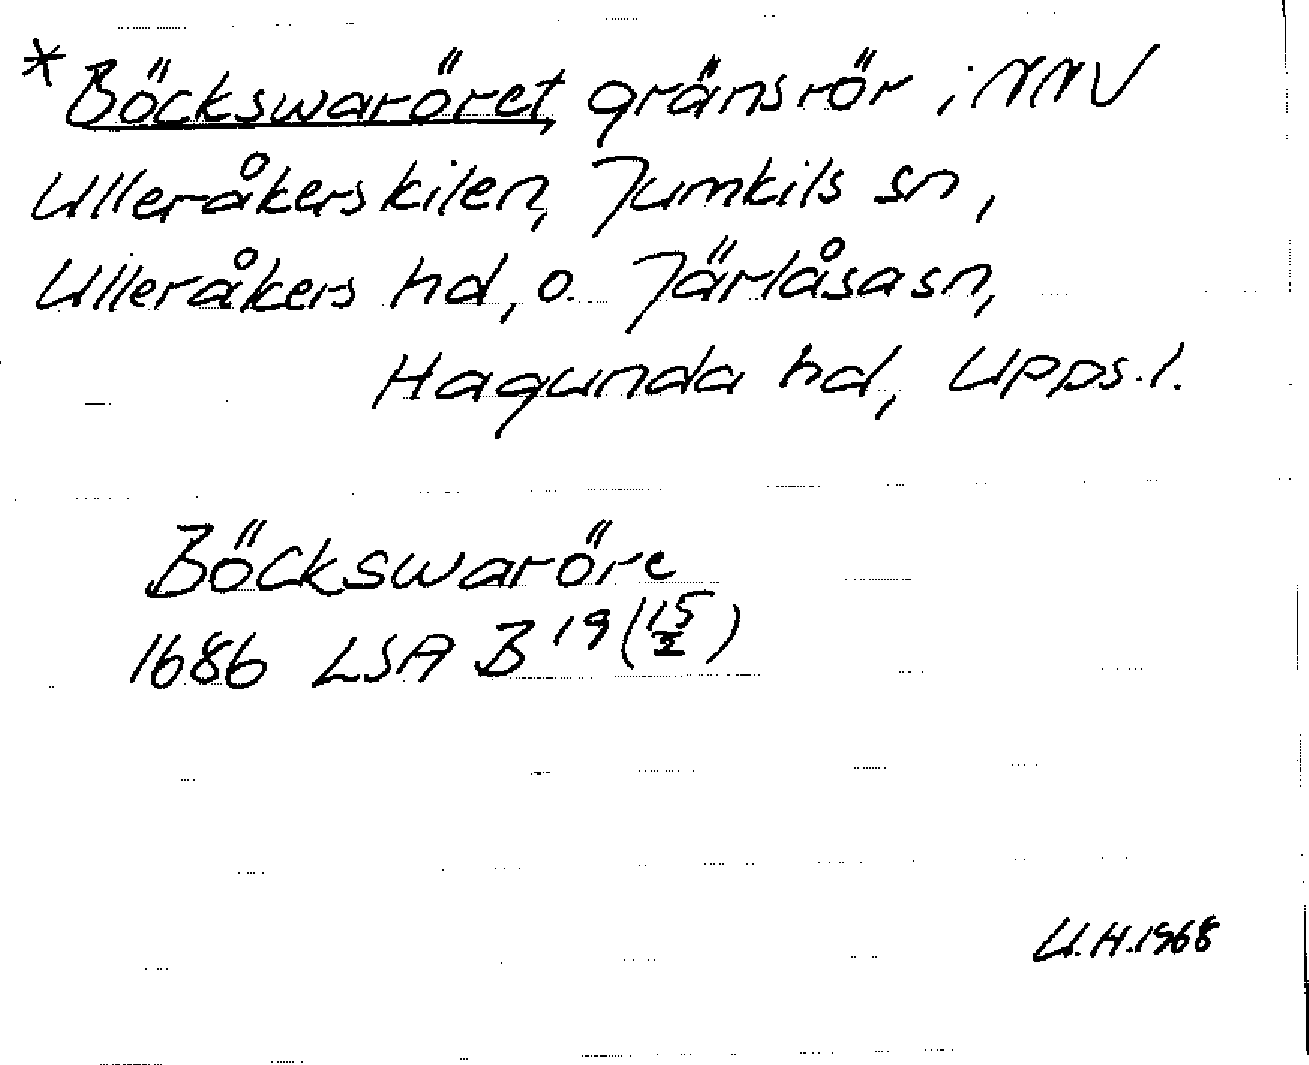 *Böckswaröret, gränsrör i NNV
Ulleråkerskilen, Jumkils sn,
Ulleråkers hd, o. Järlåsa sn,
Hagunda hd, Upps. l.
Böckswaröre
1686 LSA B 19 (15/2)
U.H.1968